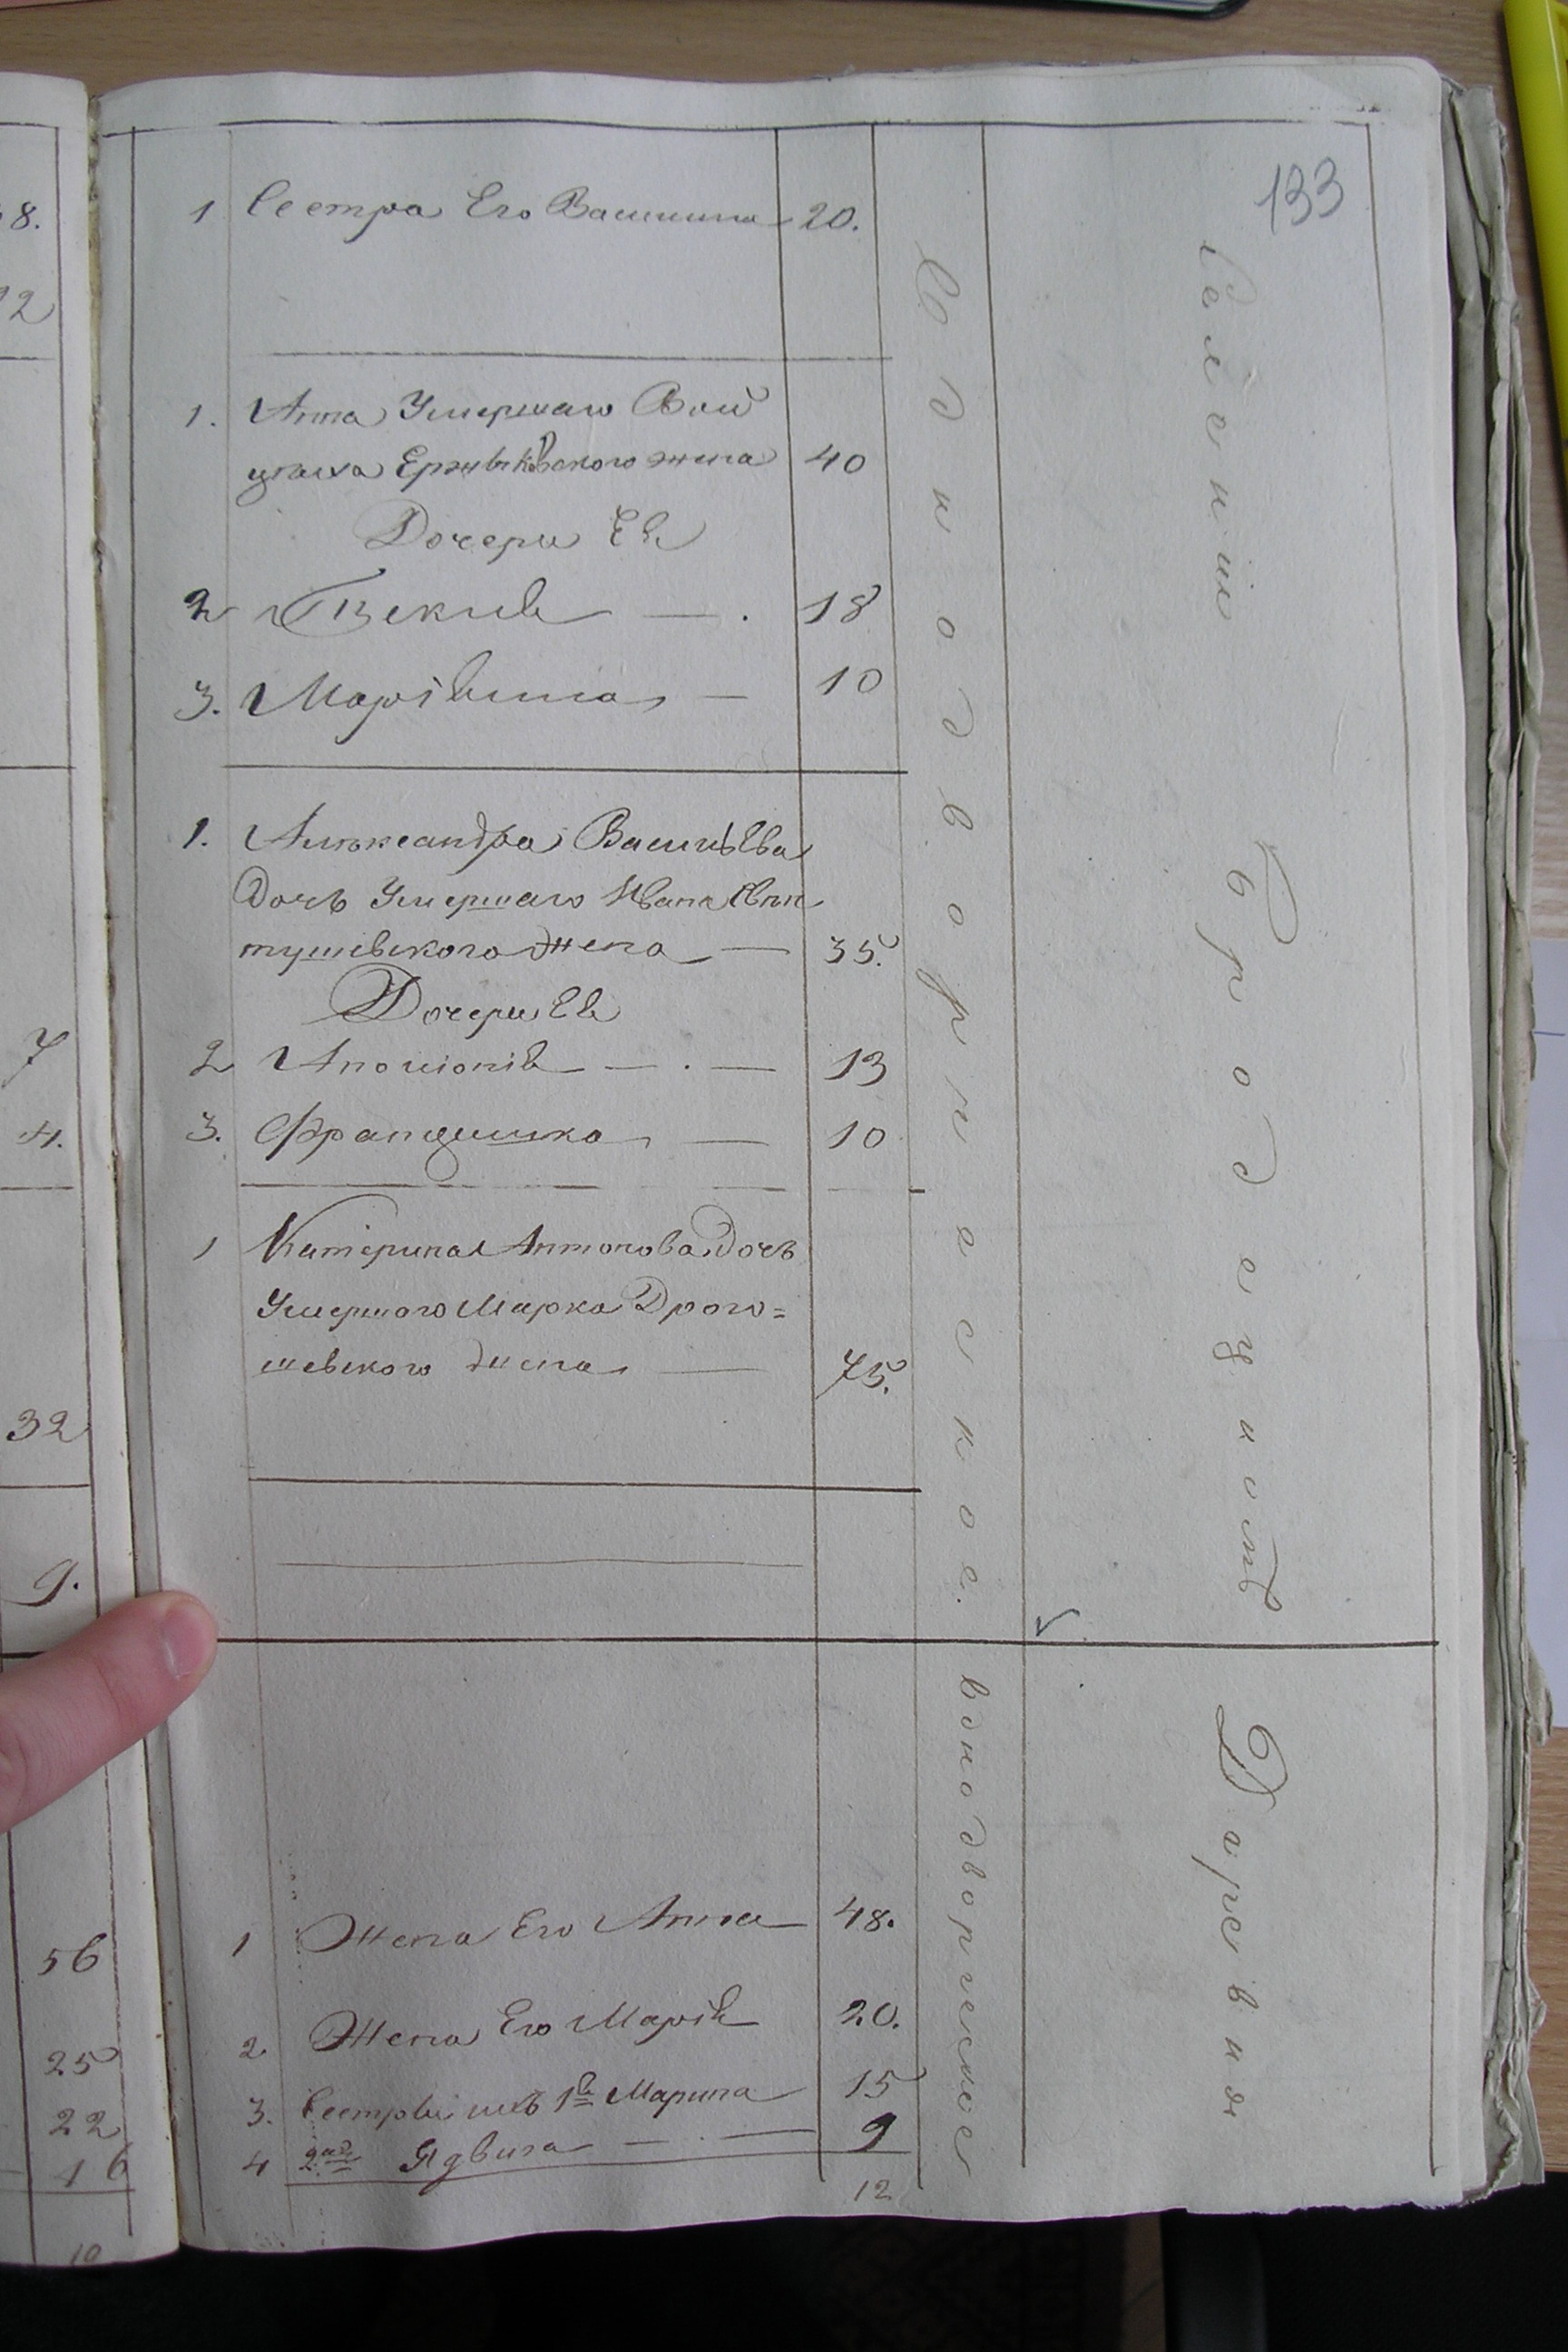 133
8.
2
1 Сестра Его 20.
1. Анна Умершаго Вой
цеха жена 40
Дочери Ея
2 Текля — . 18
3. Маріянна — 10
1. Александра Васильева
Дочь Умершаго Ивана
тушевского жена — 35.
Дочери Ея
2 Аполонія — . — 13
3. Францишка — 10
1 Катерина Антонова Дочь
Умершого Марка Дрого=
шевского жена — 75.
7
4.
32
9.
1 Жена Его Анна 48.
2. Жена Его Марія 20.
3. Сестры ихъ 1я Марина 15
4 2ая Ядвига — . — 9
12
56
25
22
16
10
Однодворческое.
однодворческое
Селеніи
Бродецкомъ
Деревни